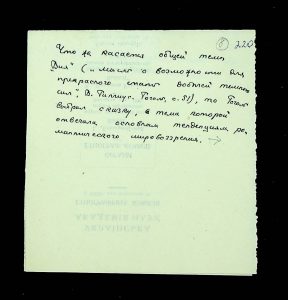 220
Что до касается общей темы
("мысль о возможности для
прекрасного стать добычей темных
сил", В. Гиппиус, Гоголь, с. 51), то Гоголь
выбрал сказку, а тема которой
отвечала основным тенденциям ро-
мантического мировоззрения. →